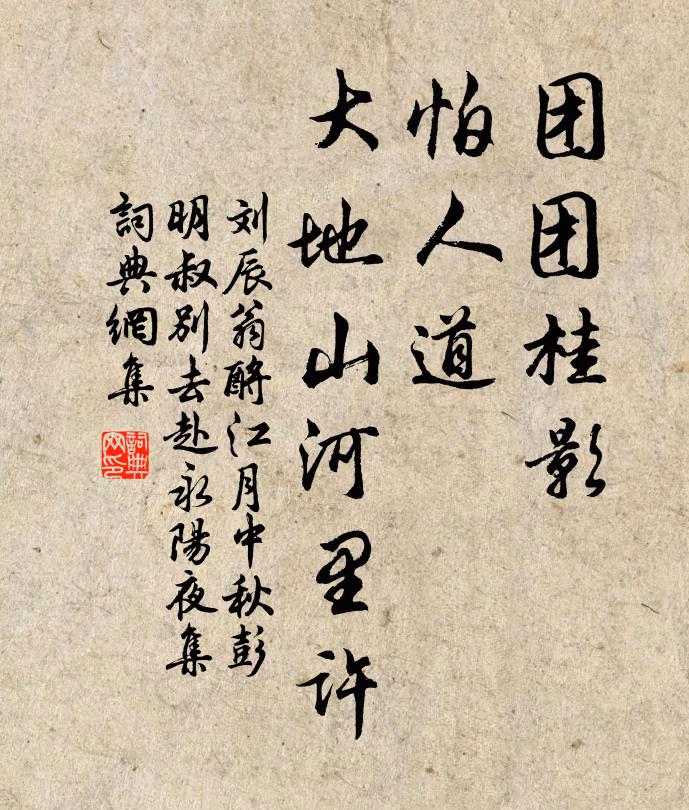 团团桂影
怕人道
大地山河里许
刘辰翁酹江月中秋彭
明叔别去赴永陽夜集
詞典網集
詞典
网印